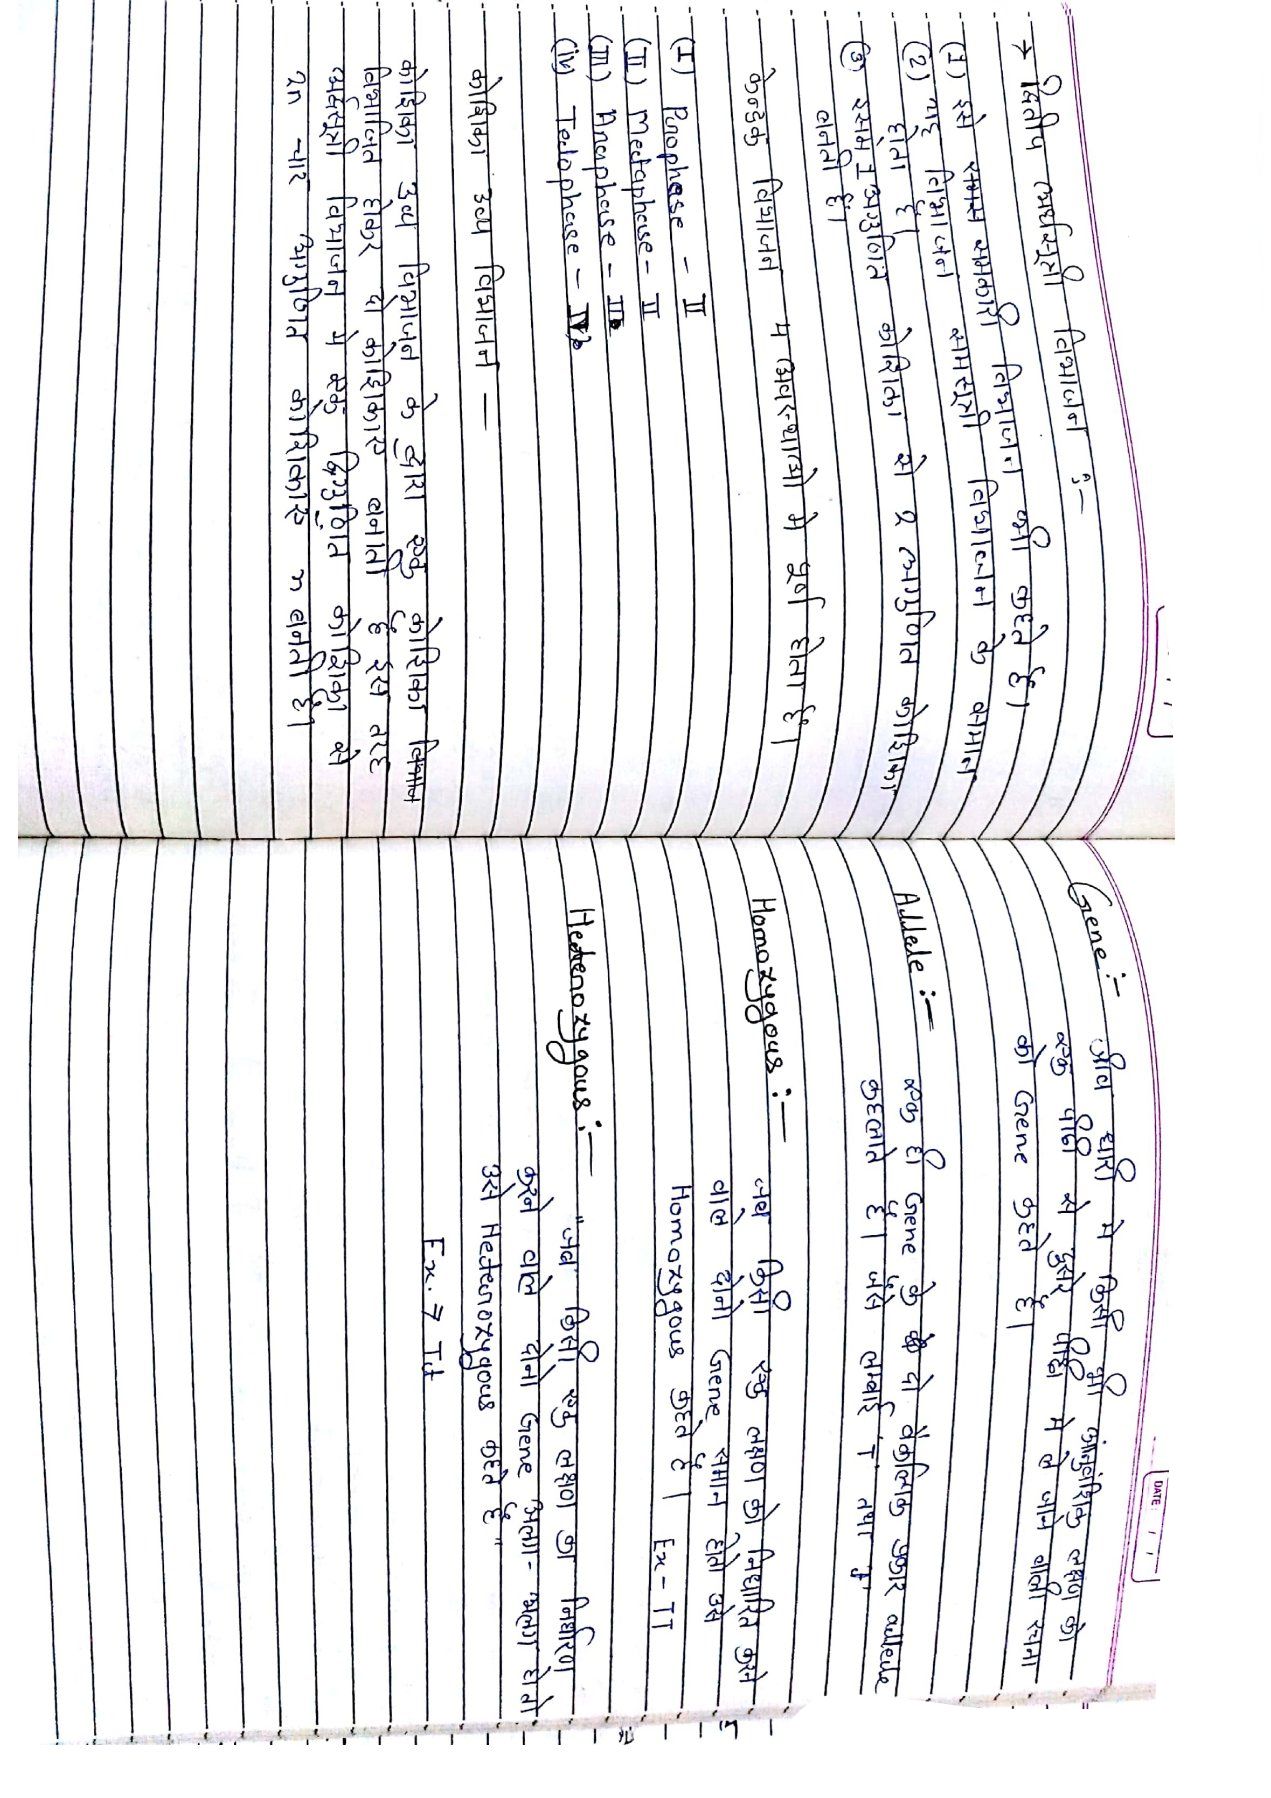 → द्वितीय अर्धसूत्री विभाजन :—
(1) इसे समसमकारी विभाजन भी कहते है।
(2) यह विभाजन समसूत्री विभाजन के समान
होता है।
(3) इसमे 1 अगुणित कोशिका से 2 अगुणित कोशिका
बनती है।
केन्द्रक विभाजन 4 अवस्थाओ मे पूर्ण होता है।
(I) Prophase - II
(II) Metaphase - II
(III) Anaphase - II
(iv) Telophase - IV
कोशिका द्रव्य विभाजन —
कोशिका द्रव्य विभाजन के द्वारा एक कोशिका विभाजन
विभाजित होकर दो कोशिकाए बनाती है इस तरह
अर्धसूत्री विभाजन मे एक द्विगुणित कोशिका से
2n चार अगुणित कोशिकाए n बनती है।
DATE: / /
Gene :- जीव धारी मे किसी भी अनुवंशिक लक्षण को
एक पीढी से दुसरे पीढी मे ले जाने वाली रचना
को Gene कहते है।
Allele :— एक ही Gene के दो वैकल्पिक प्रकार allele
कहलाते है। जैसे लम्बाई T तथा t
Homozygous :— जब किसी एक लक्षण को निर्धारित करने
वाले दोनो Gene समान होते उसे
Homozygous कहते है। Ex - TT
Heterozygous :— "जब किसी एक लक्षण का निर्धारण
करने वाले दोनो Gene अलग-अलग होते
उसे Heterozygous कहते है"
Ex. → Tt